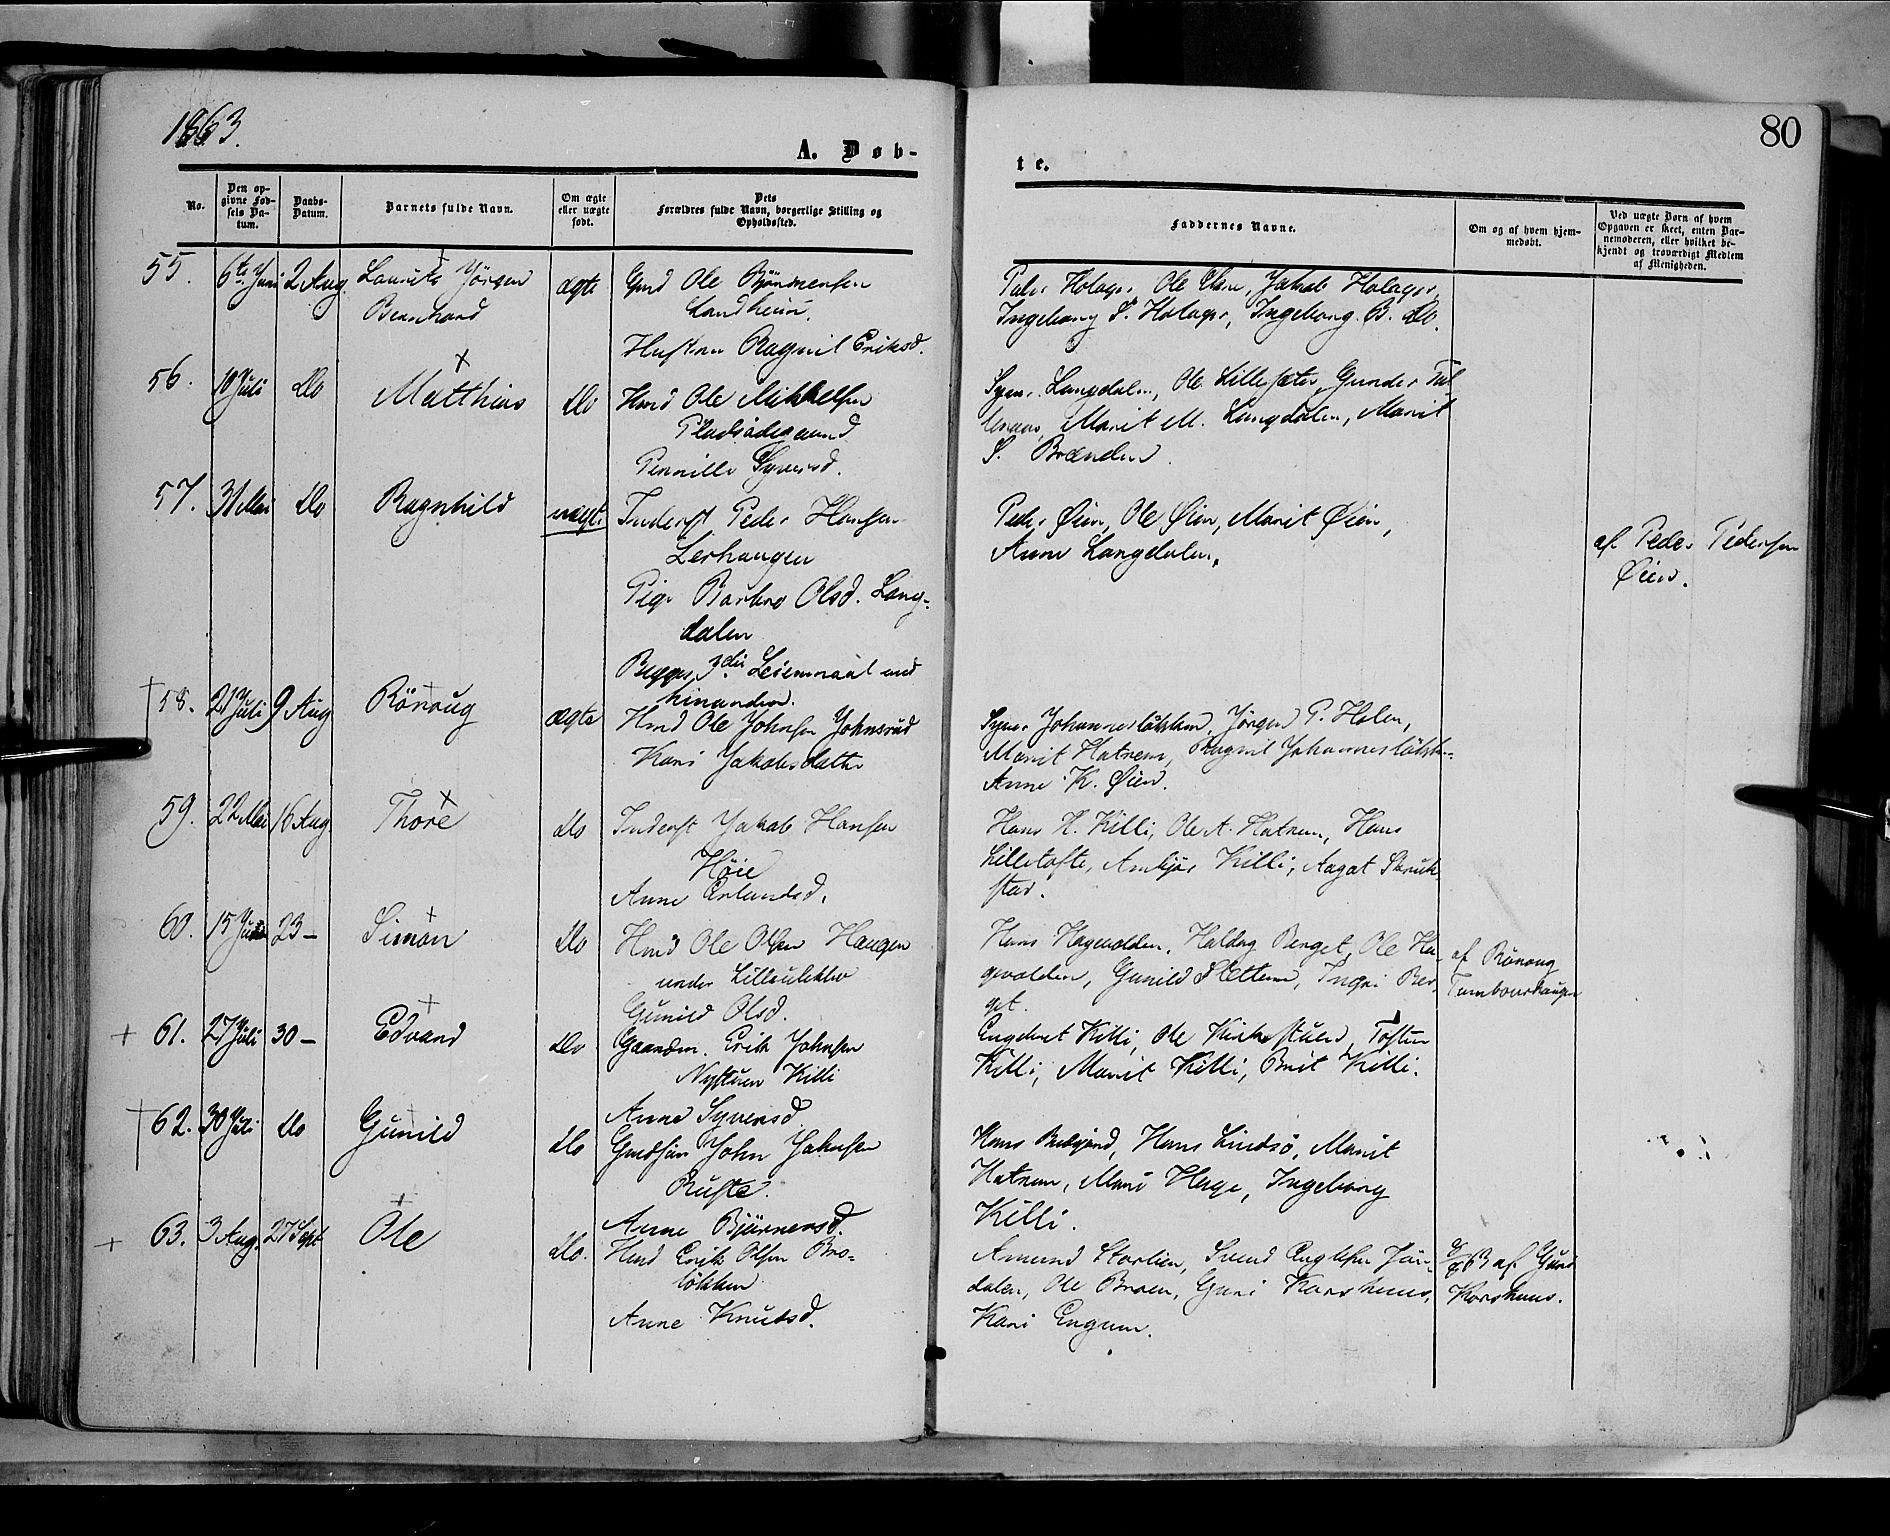 1863.
80
A. Døb-
te.
No.
Den op-
givne Fød-
sels Da-
tum.
Daabs-
Datum.
Barnets fulde Navn.
Om ægte
eller uægte
født.
Dets
Forældres fulde Navn, borgerlige Stilling og
Opholdssted.
Faddernes Navne.
Om og af hvem hjem-
medøbt.
Ved uægte Børn af hvem
Opgaven er skeet, enten Bar-
nemoderen, eller hvilket be-
kjendt og troværdigt Medlem
af Menigheden.
55. 6te Juni 2 Aug. Laurits Jörgen
Bernhard
ægte
Gmd Ole Björnersen
Landheim.
Hustru Ragnil Eriksd.
Peder Holager, Ole Jakob Holager,
Ingeborg P. Holager, Ingeborg B. do.
56. 10 Juli do Matthias do
Hmd Ole Mikkelsen
Pernille Syversd.
Syver Langdalen, Ole Lillesæter, Gunder
Marit M. Langdalen, Marit
S. Brænden.
57. 31 Mai do Ragnhild uægte
Inderst Peder Hansen
Lerhaugen
Pige Barbro Olsd. Lang-
dalen
Begges 3die Leiermaal med
hinanden.
Peder Øien, Ole Øien, Marit Øien,
Anne Langdalen.
af Peder Pedersen
Øien.
58. 21 Juli 9 Aug Rönnug ægte
Hmd Ole Johnsen Johnsrud
Kari Jakobsdatter
Syver Johannesløkken, Jörgen P. Holen,
Marit Hatrem, Ragnil Johannesløkk-
Anne K. Øien.
59. 22 Mai 16 Aug. Thore do
Inderst Jakob Hansen
Höie
Anne Erlandsd.
Hans H. Killi, Ole A. Hatrem, Hans
Lilletofte, Ambjör Killi, Aagot Skruk-
stad.
60. 15 23 – Simon do
Hmd Ole Olsen Haugen
under Lilleulekleiv
Gunild Olsd.
Hans Hagevolden, Haldog Berget, Ole Ha-
gevolden, Gunild Slettum, Ingri Ber-
get.
af Rönnug
Tambourhaugen
61. 27 Juli 30 – Edvard do
Gaardm. Erik Johnsen
Nystuen Killi
Anne Syversd.
Engebret Killi, Ole Kirkestuen, Tosten
Killi, Marit Killi, Brit Killi.
62. 30 Juli do Gunild do
John Johnsen
Ruste.
Anne Björnersd.
Hans Hans Lindsö, Marit
Hatrem, Mari Hage, Ingeborg
Killi.
63. 3 Aug. 27 Sept Ole do.
Hmd Erik Olsen Bro-
løkken
Anne Knutsd.
Amund Storlien, Svend Engelsen Jön-
dalen, Ole Broen, Guri Korshuus,
Kari Engum.
63 af Guri
Korshuus.